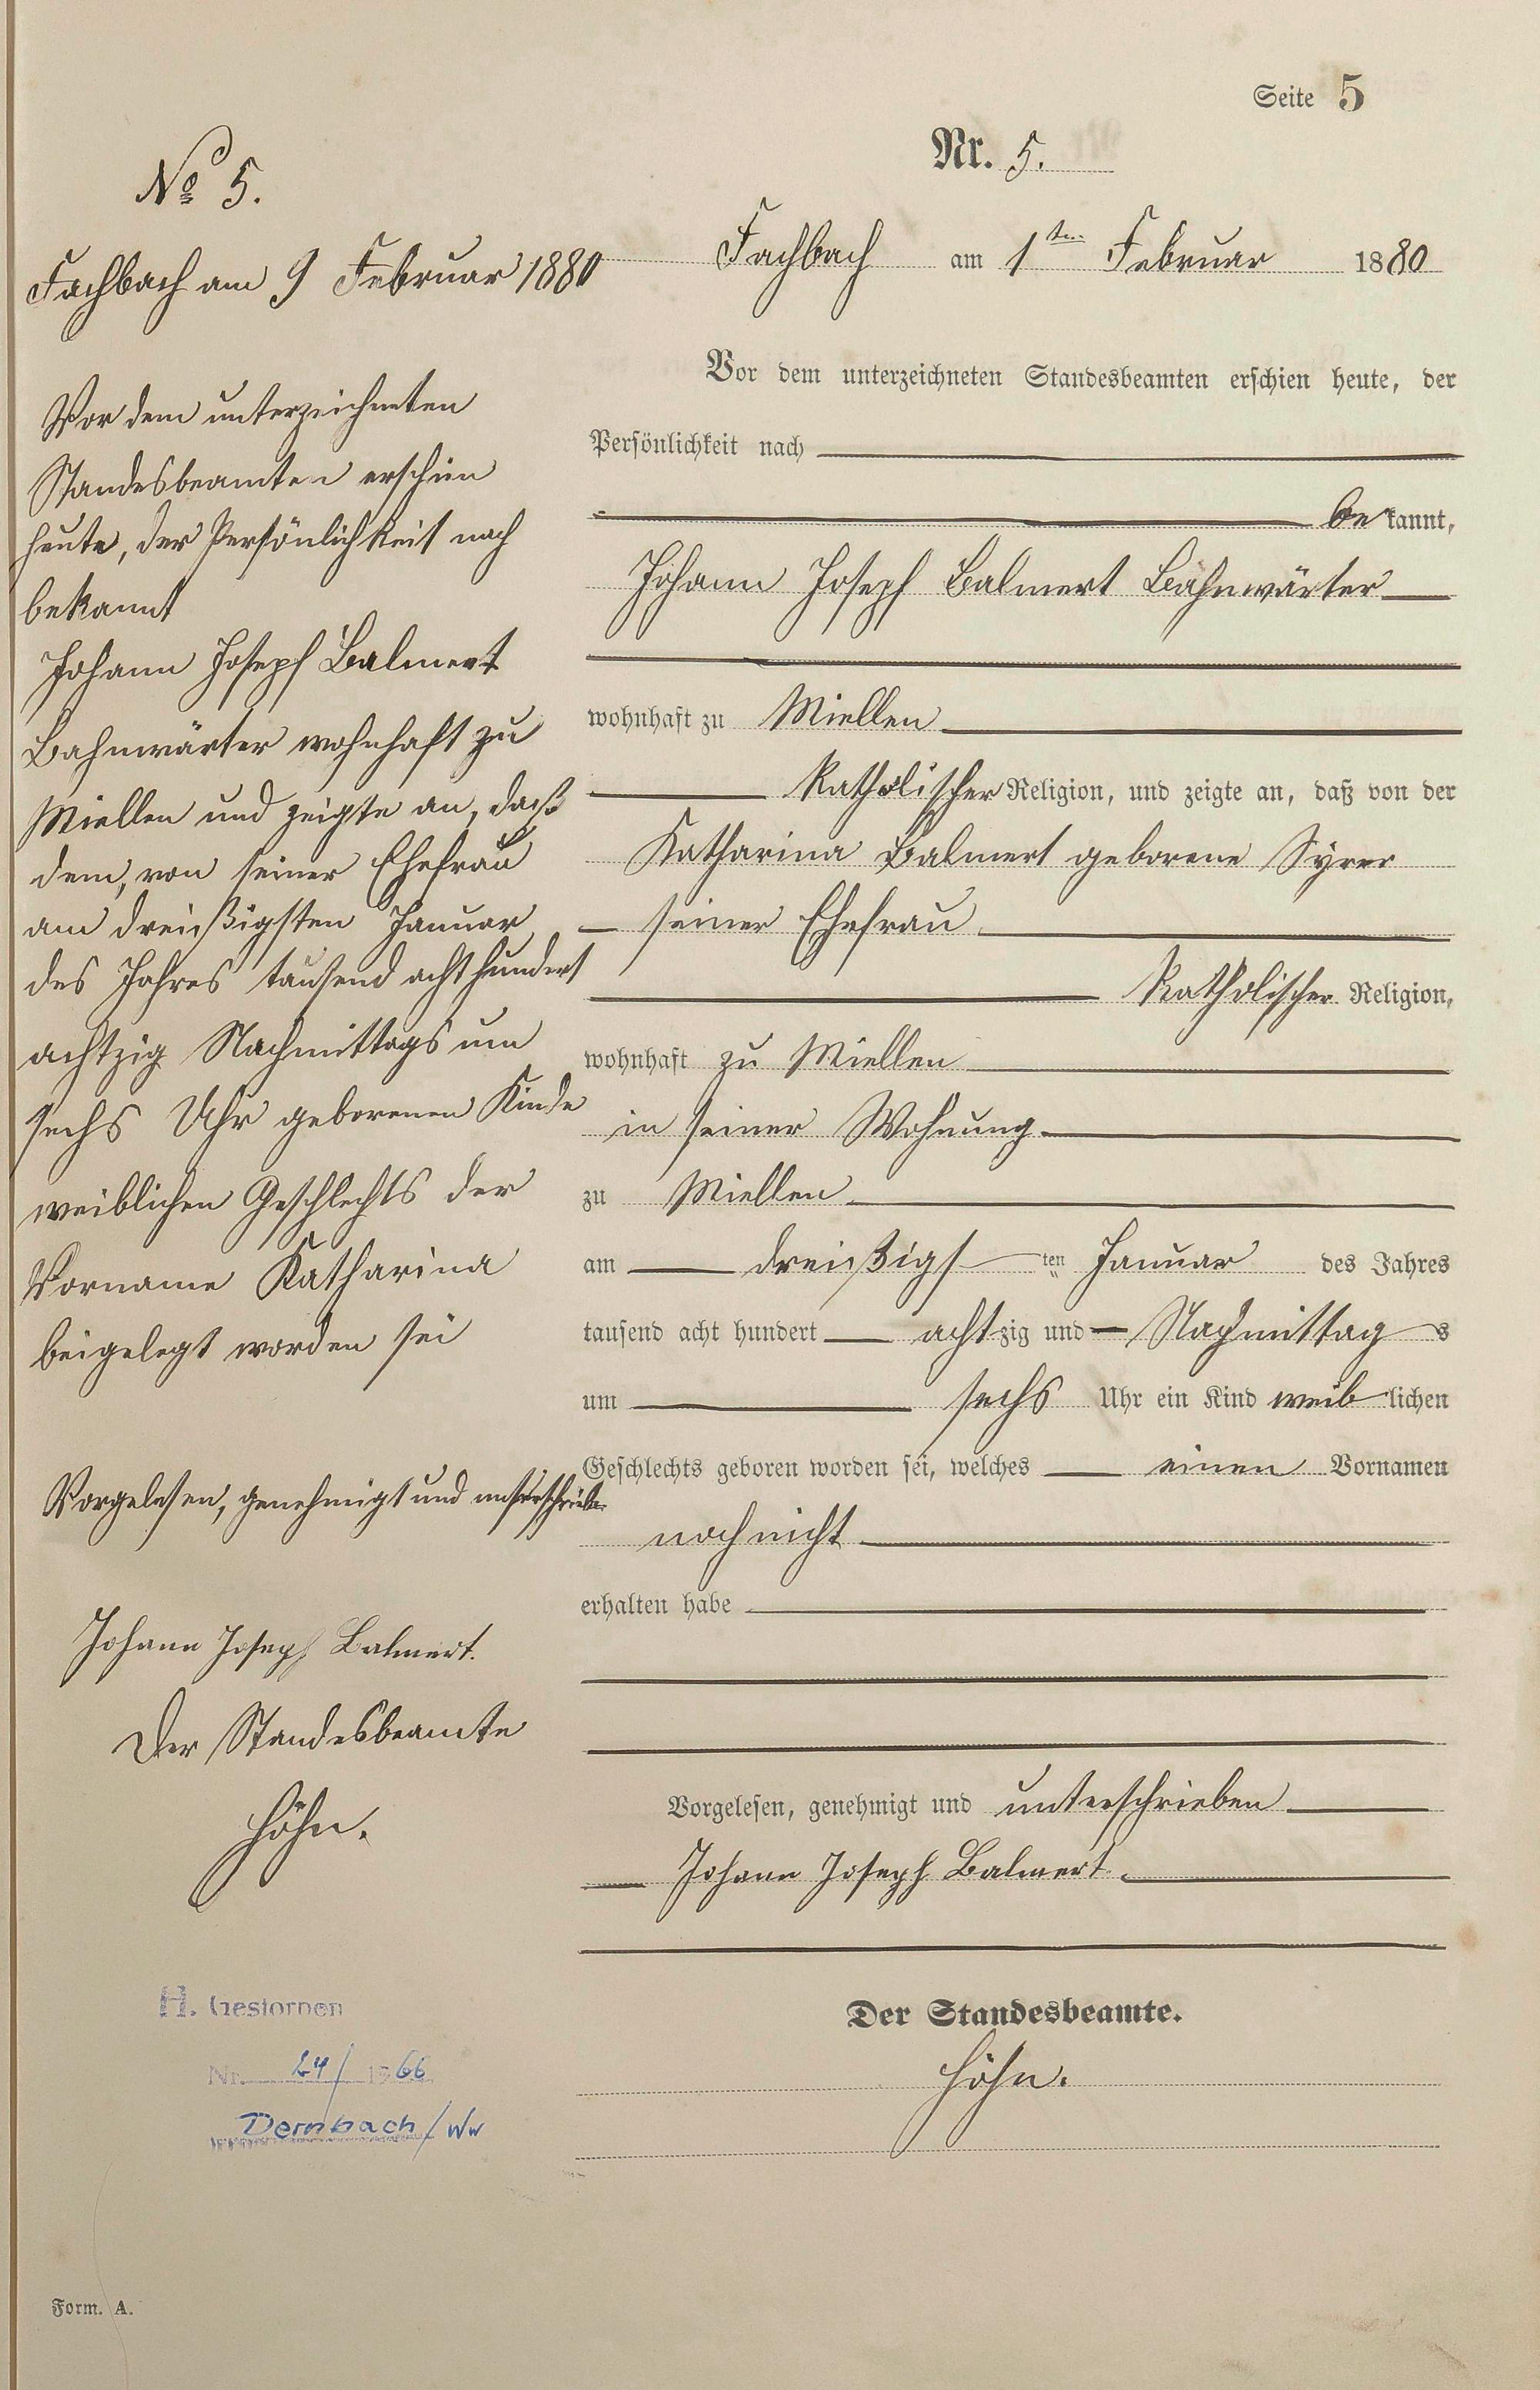 Seite 5
Nr. 5.
Fachbach am 1ten Februar 1880
Vor dem unterzeichneten Standesbeamten erschien heute, der
Persönlichkeit nach
bekannt,
Johann Joseph Balmert Bahnwärter
wohnhaft zu Miellen
Katholischer Religion, und zeigte an, daß von der
Katharina Balmert geborene Syrer
seiner Ehefrau
Katholischer Religion,
wohnhaft zu Miellen
in seiner Wohnung
zu Miellen
am dreißigsten Januar des Jahres
tausend acht hundert achtzig und Nachmittags
um sechs Uhr ein Kind weiblichen
Geschlechts geboren worden sei, welches einen Vornamen
noch nicht
erhalten habe
Vorgelesen, genehmigt und unterschrieben
Johann Joseph Balmert.
Der Standesbeamte.
Höhn.
No 5.
Fachbach am 9 Februar 1880
Vor dem unterzeichneten
Standesbeamten erschien
heute, der Persönlichkeit nach
bekannt
Johann Joseph Balmert
Bahnwärter wohnhaft zu
Miellen und zeigte an, daß
dem, von seiner Ehefrau
am dreißigsten Januar
des Jahres tausend acht hundert
achtzig Nachmittags um
sechs Uhr geborenen Kinde
weiblichen Geschlechts der
Vorname Katharina
beigelegt worden sei
Vorgelesen, genehmigt und unterschrieben
Johann Joseph Balmert.
Der Standesbeamte
Höhn.
H. Gestorben
Nr. 24/1966
Dernbach/Ww
Form. A.